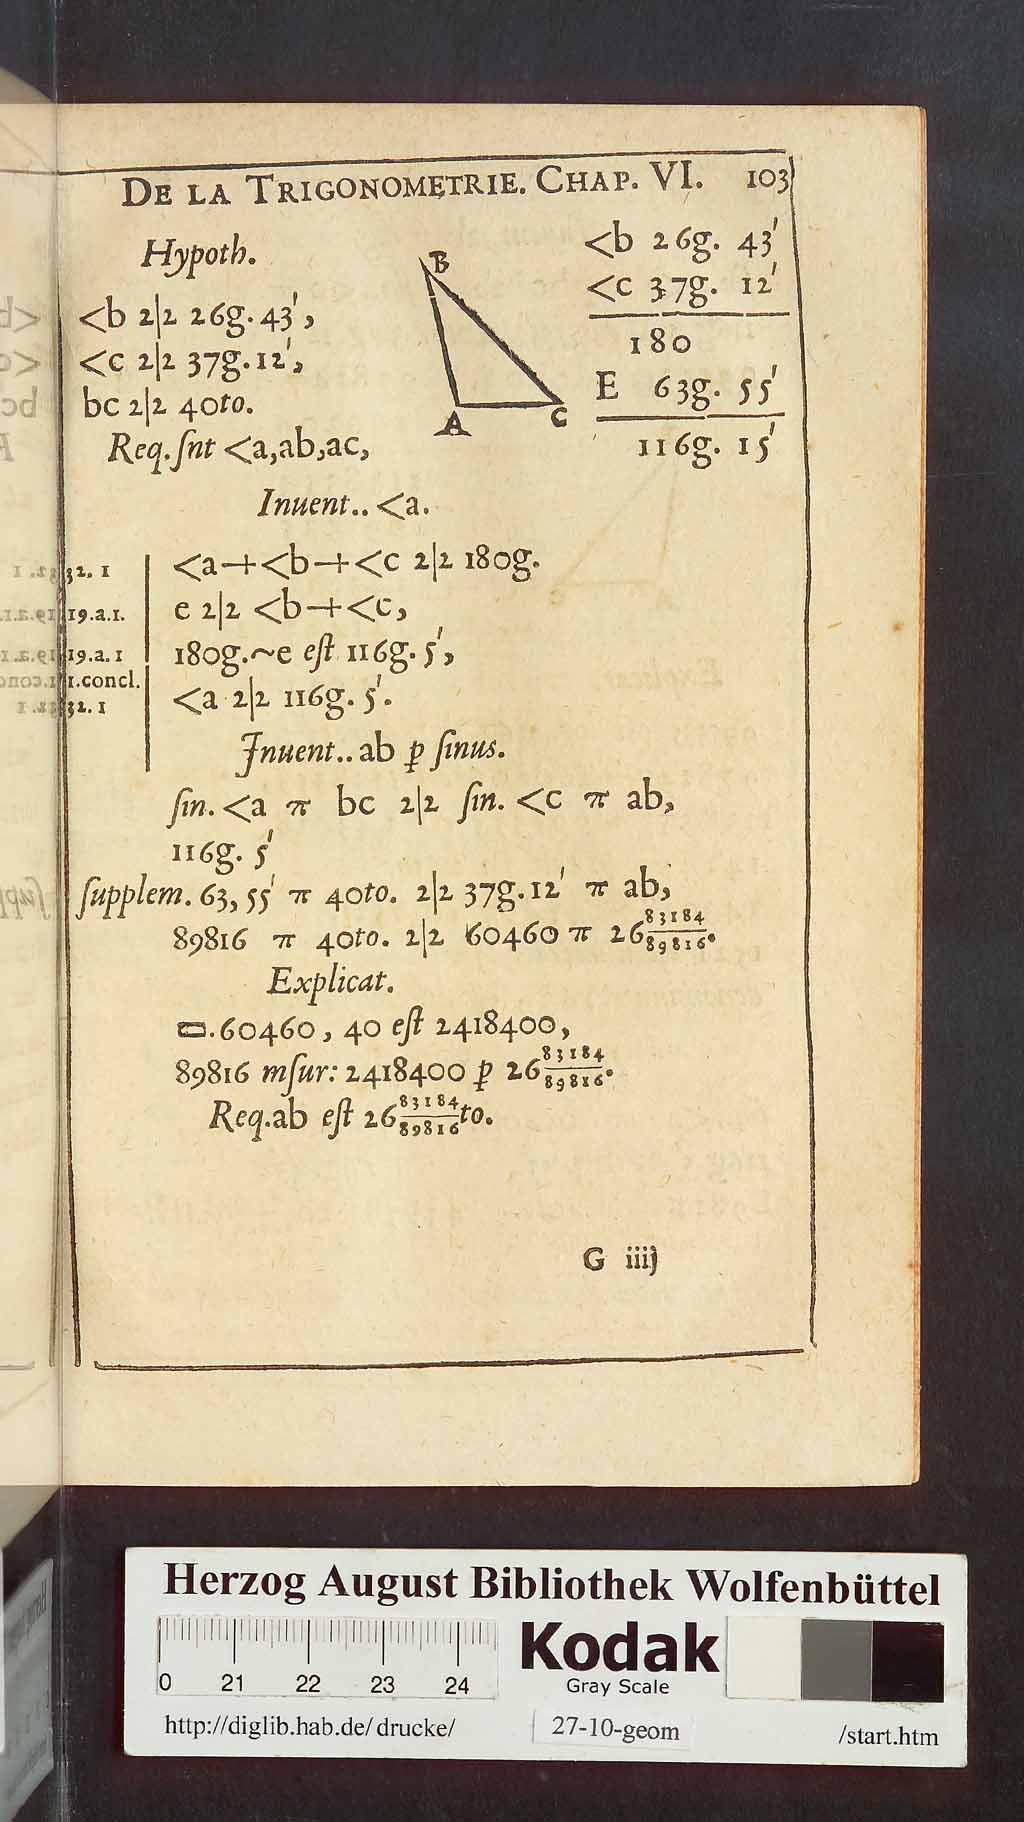 DE LA TRIGONOMETRIE. CHAP. VI. 103
Hypoth.
<b 2|2 26g. 43',
<c 2|2 37g. 12',
bc 2|2 40to.
Req. ſnt <a, ab, ac,
B
A
C
<b 26g. 43'
<c 37g. 12'
180
E 63g. 55'
116g. 15'
Inuent.. <a.
32. 1 <a+<b+<c 2|2 180g.
19.a.1. e 2|2 <b+<c,
19.a.1 180g.~e eſt 116g. 5',
1.concl.
32. 1 <a 2|2 116g. 5'.
Inuent.. ab ꝑ ſinus.
ſin. <a π bc 2|2 ſin. <c π ab,
116g. 5'
ſupplem. 63, 55' π 40to. 2|2 37g. 12' π ab,
89816 π 40to. 2|2 60460 π 26 83184/89816.
Explicat.
▭. 60460, 40 eſt 2418400,
89816 mſur: 2418400 ꝑ 26 83184/89816.
Req. ab eſt 26 83184/89816 to.
G iiij
Herzog August Bibliothek Wolfenbüttel
0 21 22 23 24
Kodak
Gray Scale
http://diglib.hab.de/drucke/ 27-10-geom /start.htm